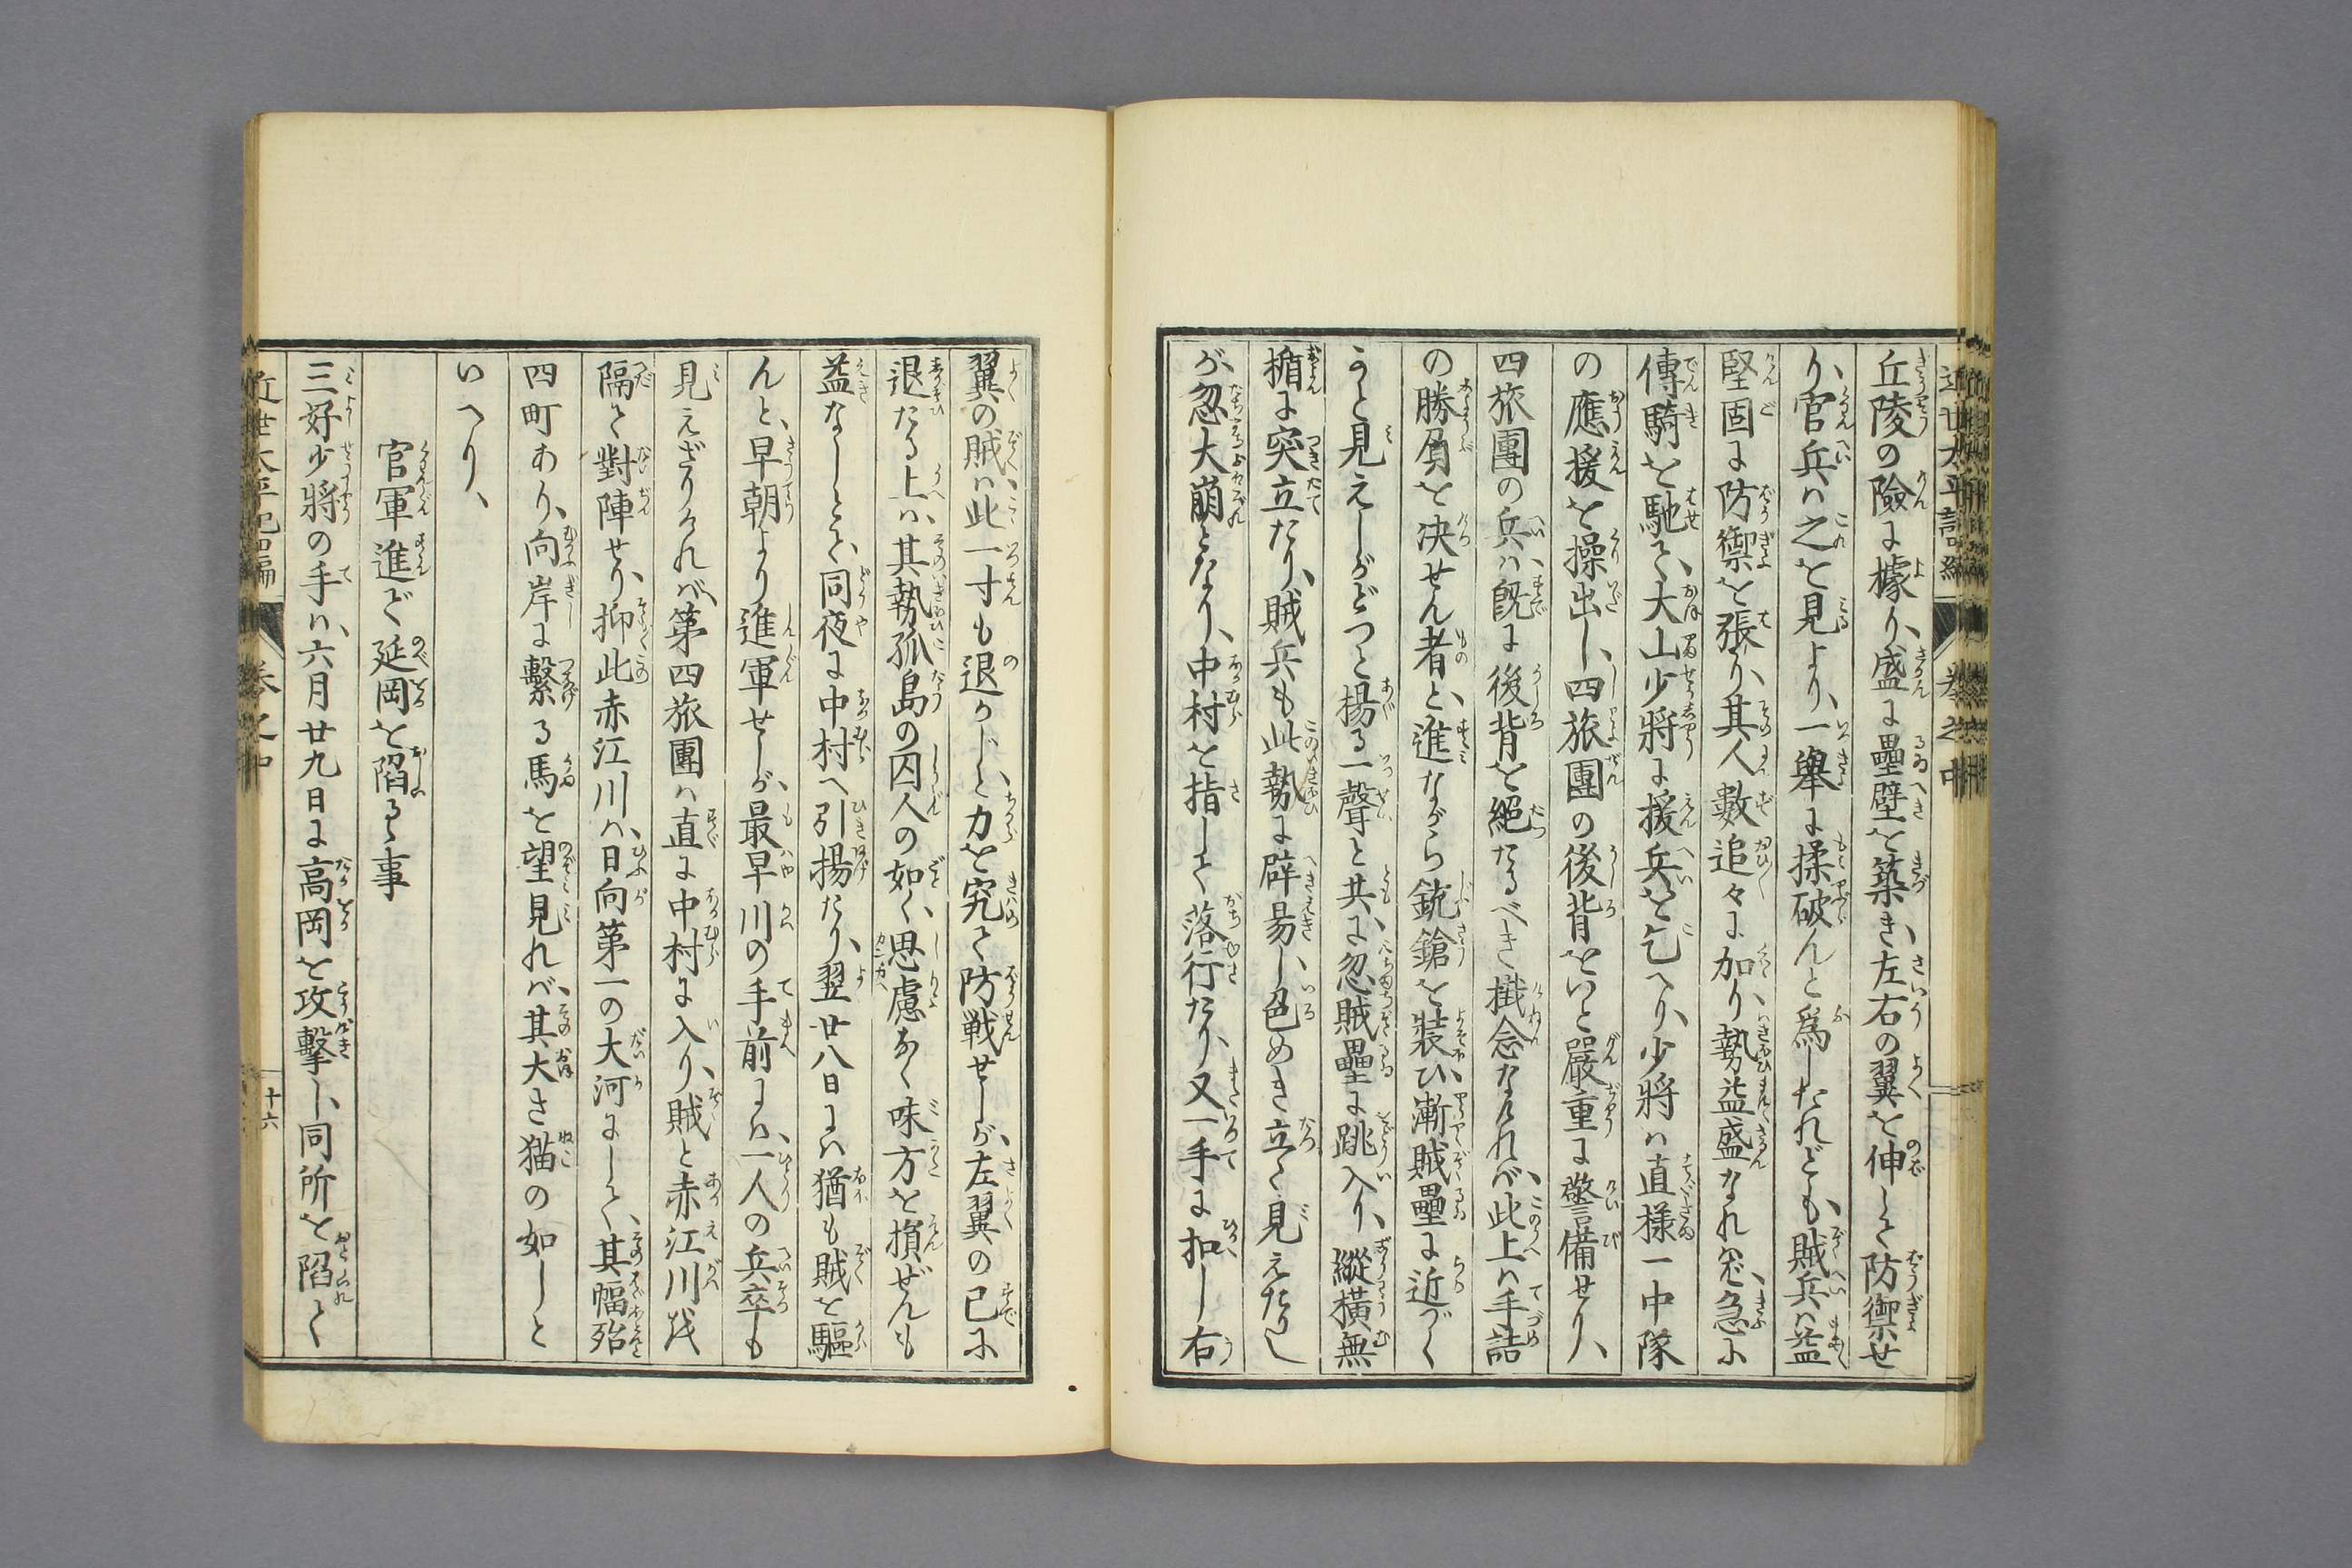 丘陵の險に據り、盛に壘壁を築き、左右の翼を伸して防禦せ
り、官兵ハ之を見より、一擧に揉破んと爲したれども、賊兵ハ益
堅固に防禦を張り、其人數追々に加り、勢益盛なれバ、急に
傳騎を馳て、大山少將に援兵を乞へり、少將ハ直樣一中隊
の應援を操出し、四旅團の後背をいと嚴重に警備せり、
四旅團の兵ハ、既に後背を絕たるべき掛念なけれバ、此上ハ手詰
の勝負を决せん者と、進ながら銃鎗を裝ひ、漸賊壘に近づく
うと見えしがどつと揚る一聲と共に、忽賊壘に跳入り、縱橫無
楯に突立たり、賊兵も此勢に辟易し、色めき立て見えたりし
が、忽大崩となり、中村を指して落行たり、又一手に扣し右
翼の賊ハ、此一寸も退かじと、力を究て防戰せしが、左翼の已に
退たる上ハ、其勢孤島の囚人の如く、思慮なく味方を損ぜんも
益なしとて、同夜に中村へ引揚たり、翌廿八日にハ猶も賊を驅
んと、早朝より進軍せしが、最早川の手前にハ、一人の兵卒も
見えざりけれバ、第四旅團ハ直に中村に入り、賊と赤江川を
隔て對陣せり、抑此赤江川ハ、日向第一の大河にして、其幅殆
四町あり、向岸に繫げる馬を望見れバ、其大さ猫の如しと
いへり、
官軍進で延岡を陷る事
三好少將の手ハ、六月廿九日に高岡を攻擊し、同所を陷て
近世太平記二編
卷之中
十六